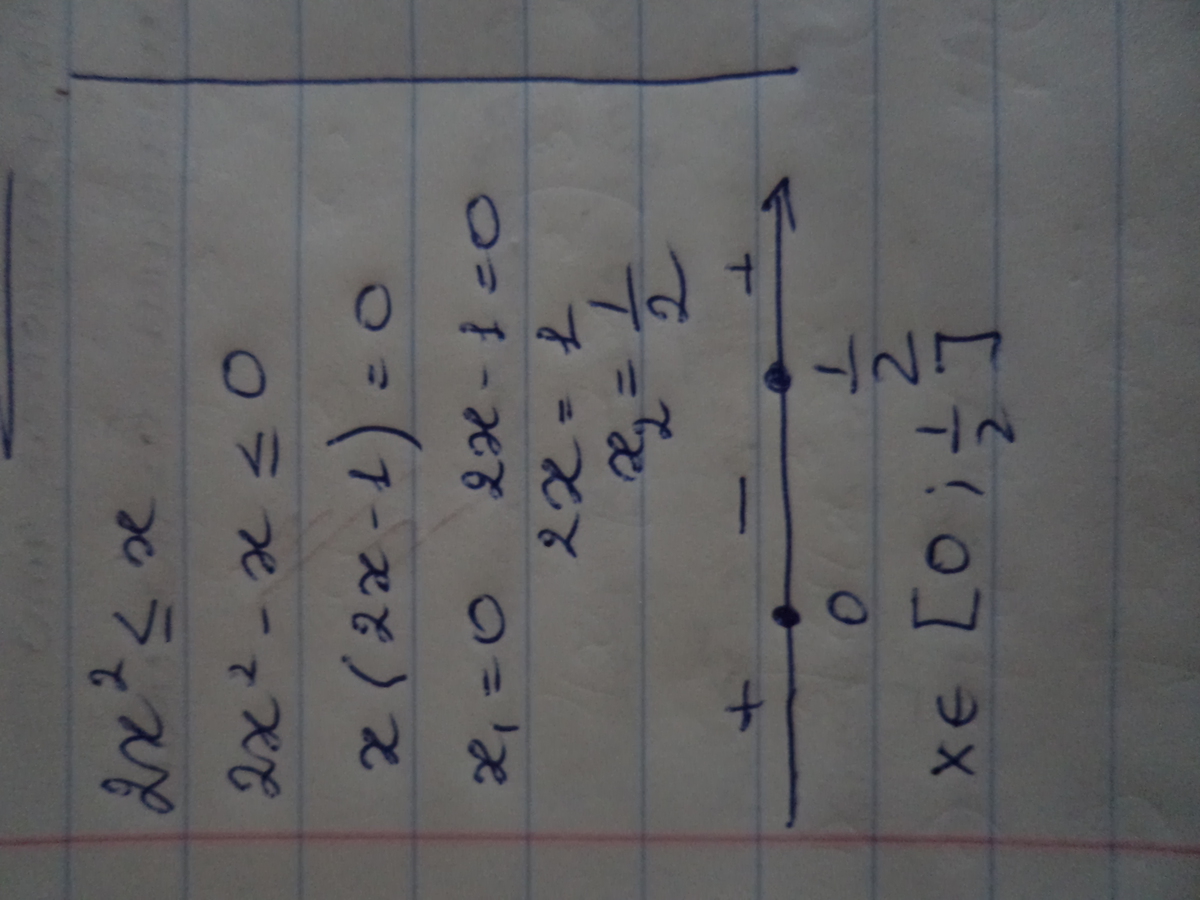 2x² ≤ x
2x² - x ≤ 0
x (2x - 1) = 0
x₁ = 0 2x - 1 = 0
2x = 1
x₂ = 1/2
+ - +
0 1/2
x ∈ [0 ; 1/2]